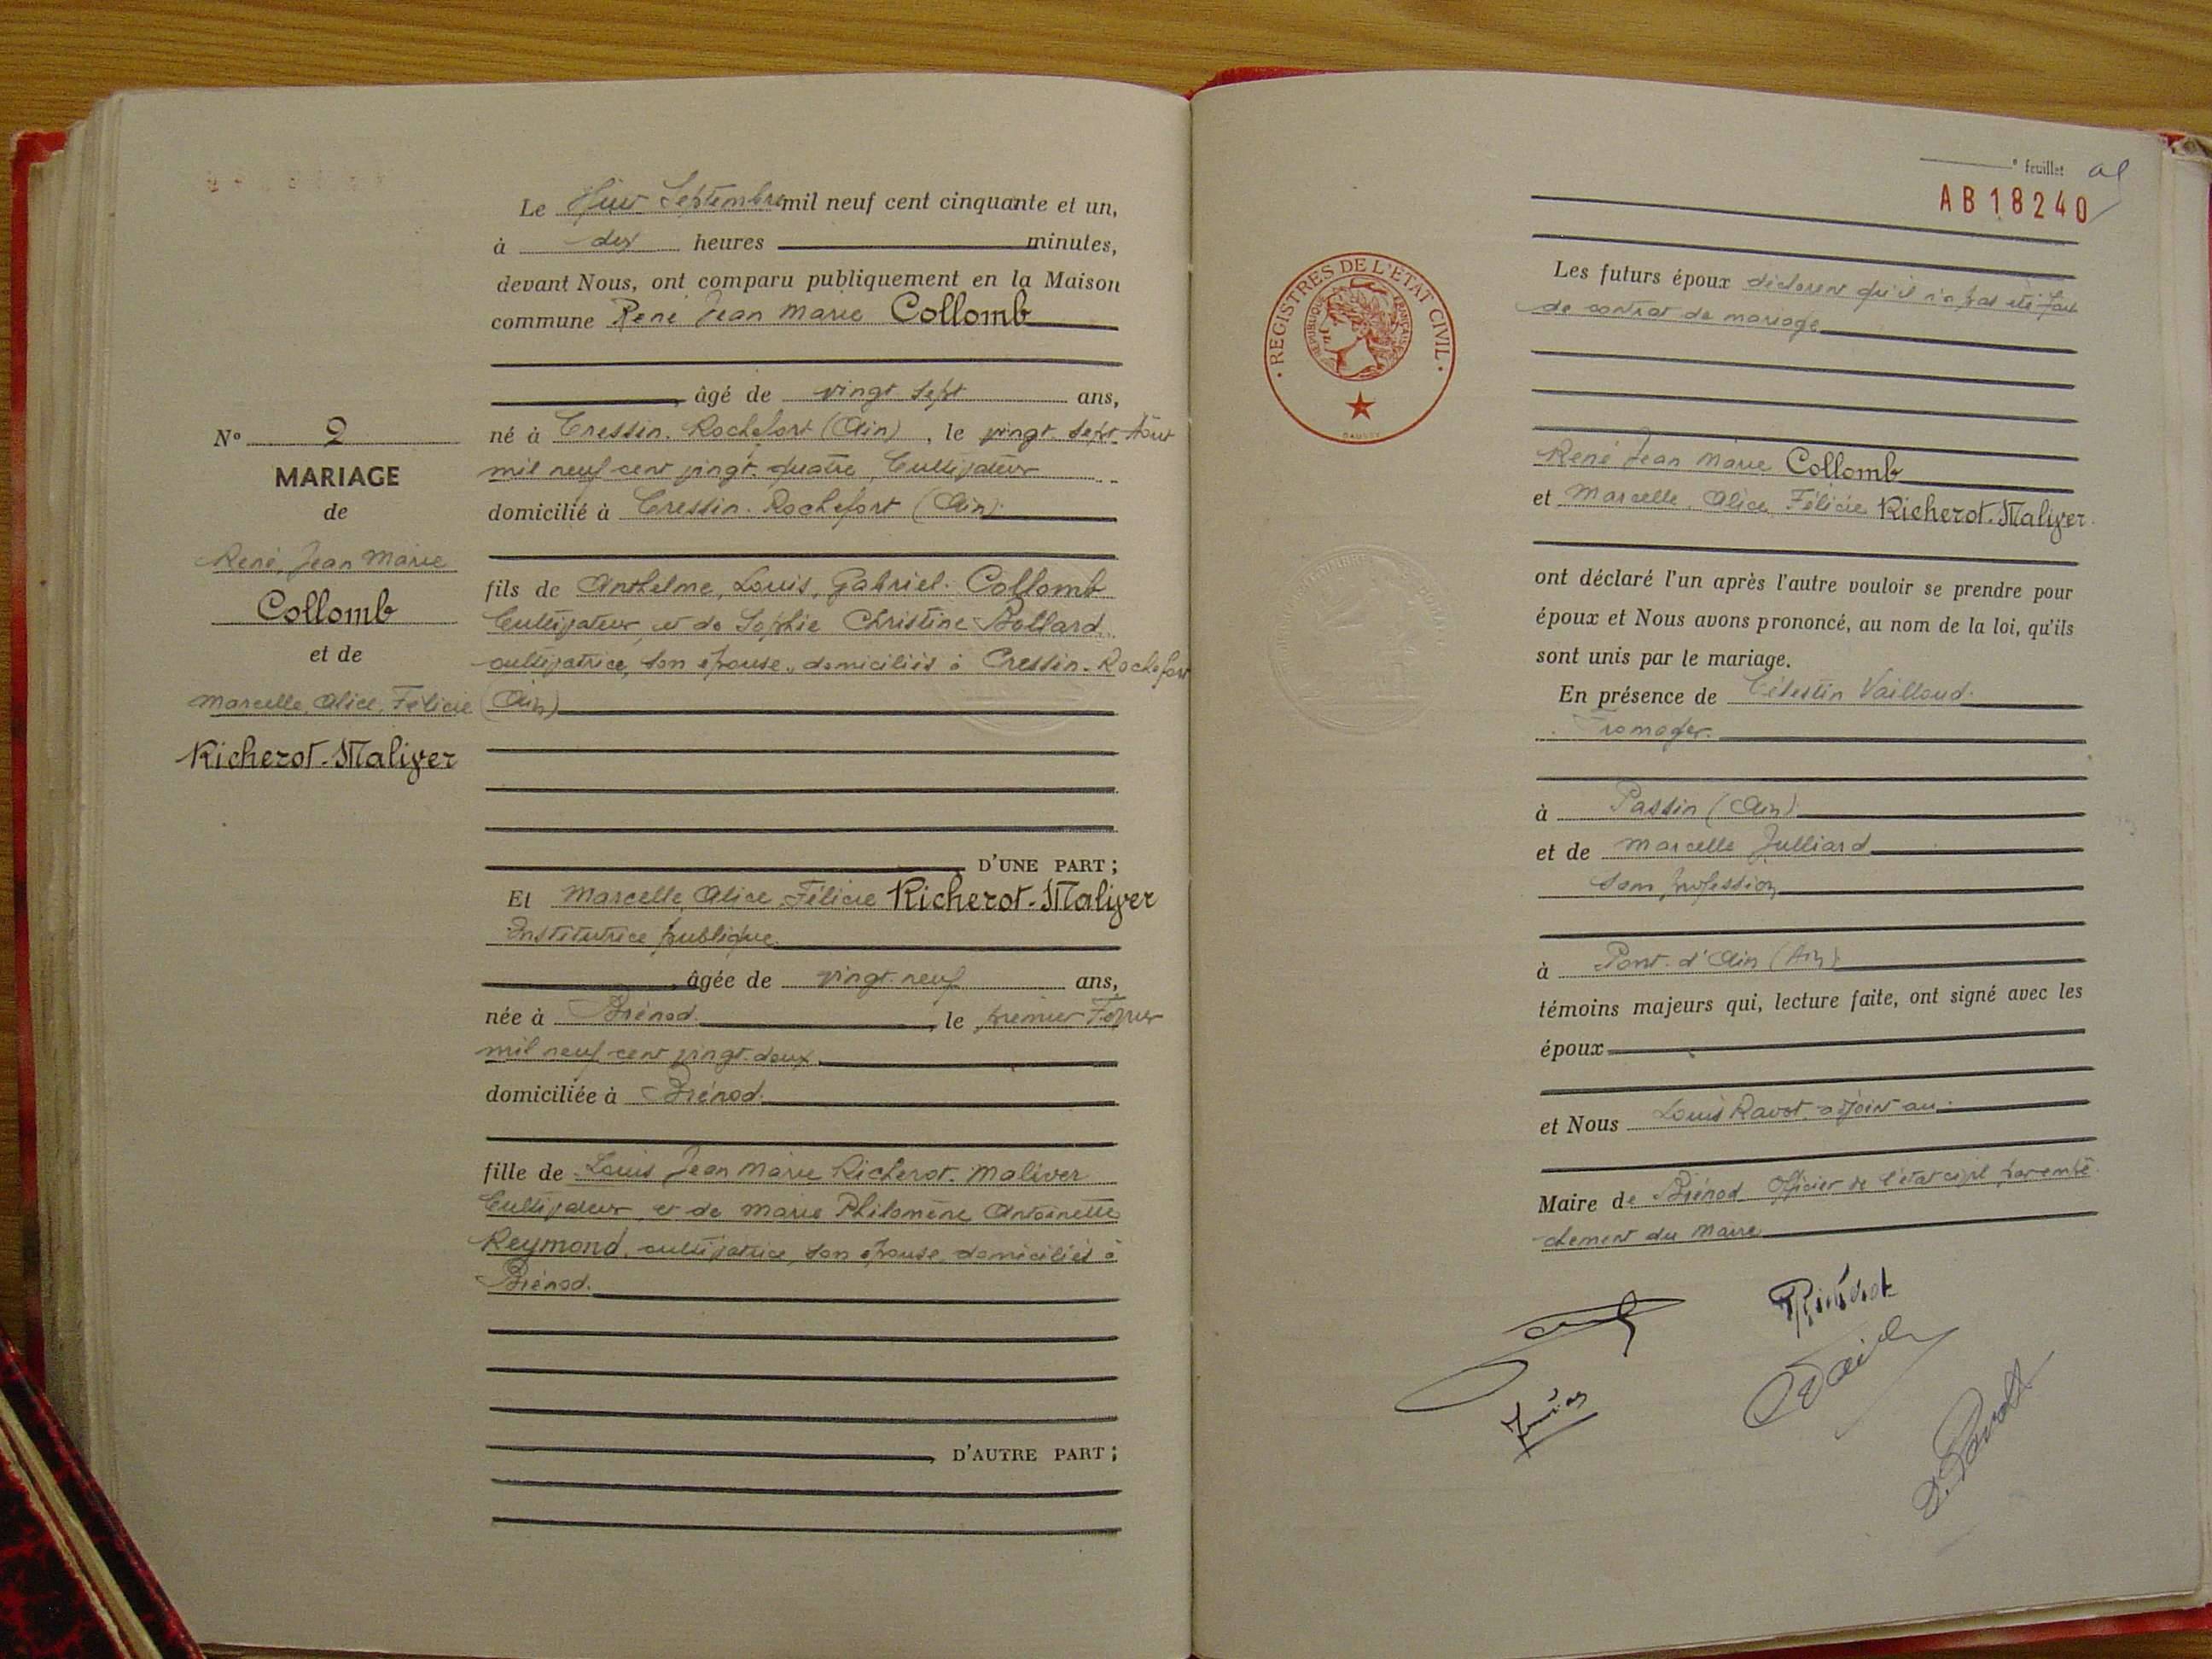 Le Huit Septembre mil neuf cent cinquante et un,
à dix heures minutes,
devant Nous, ont comparu publiquement en la Maison
commune René Jean Marie Collomb
âgé de vingt-sept ans,
né à Cressin-Rochefort (Ain), le vingt-sept Aout
mil neuf cent vingt-quatre, Cultivateur
domicilié à Cressin-Rochefort (Ain)
fils de Anthelme, Louis, Gabriel Collomb
Cultivateur, et de Sophie Christine Bollard
cultivatrice, son épouse, domiciliés à Cressin-Rochefort
(Ain)
D'UNE PART ;
Et Marcelle, Alice, Félicie Richerot-Maliver
Institutrice publique
âgée de vingt-neuf ans,
née à Brénod, le premier Février
mil neuf cent vingt-deux
domiciliée à Brénod
fille de Louis Jean Marie Richerot-Maliver
Cultivateur, et de Marie Philomène Antoinette
Reymond, cultivatrice, son épouse domiciliés à
Brénod.
D'AUTRE PART ;
N° 2
MARIAGE
de
René, Jean Marie
Collomb
et de
Marcelle, Alice, Félicie
Richerot-Maliver
° feuillet
AB18240
REGISTRES DE L'ETAT CIVIL
REPUBLIQUE FRANÇAISE
Les futurs époux déclarent qu'il n'a pas été fait
de contrat de mariage
René Jean Marie Collomb
et Marcelle, Alice, Félicie Richerot-Maliver
ont déclaré l'un après l'autre vouloir se prendre pour
époux et Nous avons prononcé, au nom de la loi, qu'ils
sont unis par le mariage.
En présence de Célestin Vailloud
Fromager.
à Passin (Ain)
et de Marcelle Julliard
Sans profession
à Pont-d'Ain (Ain)
témoins majeurs qui, lecture faite, ont signé avec les
époux
et Nous Louis Ravot, adjoint au
Maire de Brénod Officier de l'état civil par empê
chement du Maire
Richerot
L. Ravot